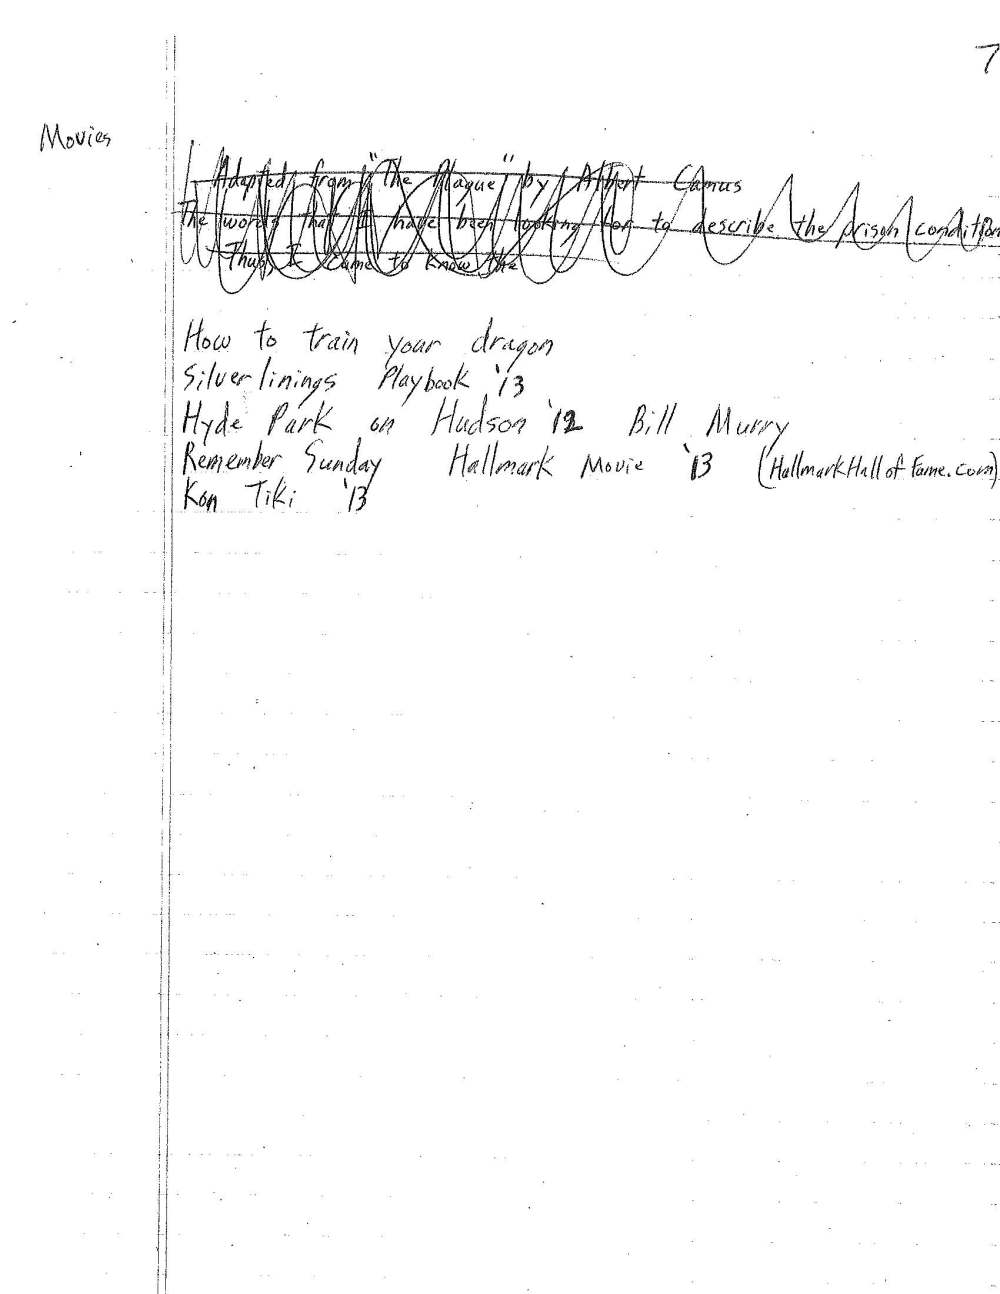 7
Movies
Adapted from "The Plague" by Albert Camus
The words that I have been looking for to describe the prison condition
Thus, I came to know the
How to train your dragon
Silver linings Playbook '13
Hyde Park on Hudson '12 Bill Murry
Remember Sunday Hallmark Movie '13 (HallmarkHallofFame.com)
Kon Tiki '13